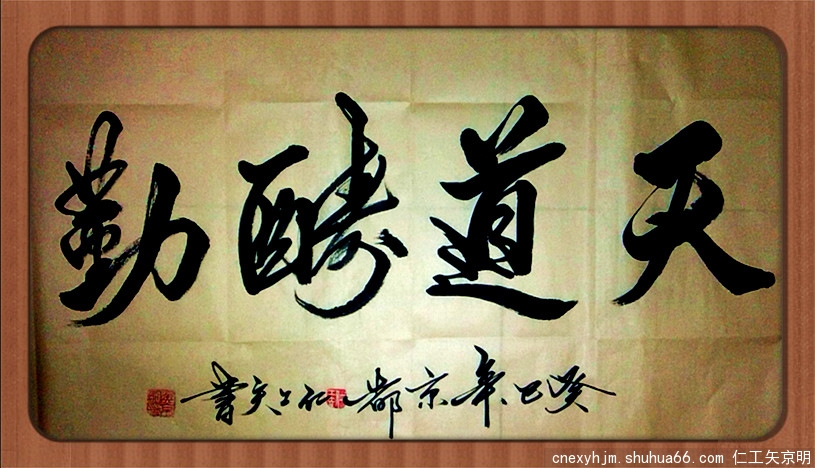 天道醻勤
癸巳年京都仁工矢書
cnexyhjm.shuhua66.com 仁工矢京明